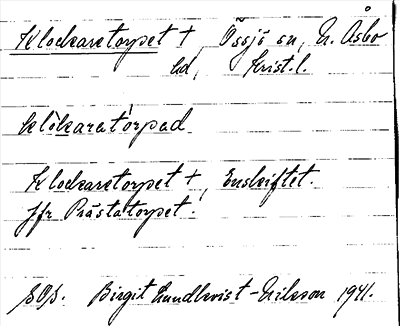 Klockaretorpet †, Össjö sn, N. Åsbo
hd, Krist. l.
klòkaratórpad
Klockaretorpet †, Enskiftet.
Jfr Prästatorpet.
SOS. Birgit Lundkvist-Nilsson 1941.